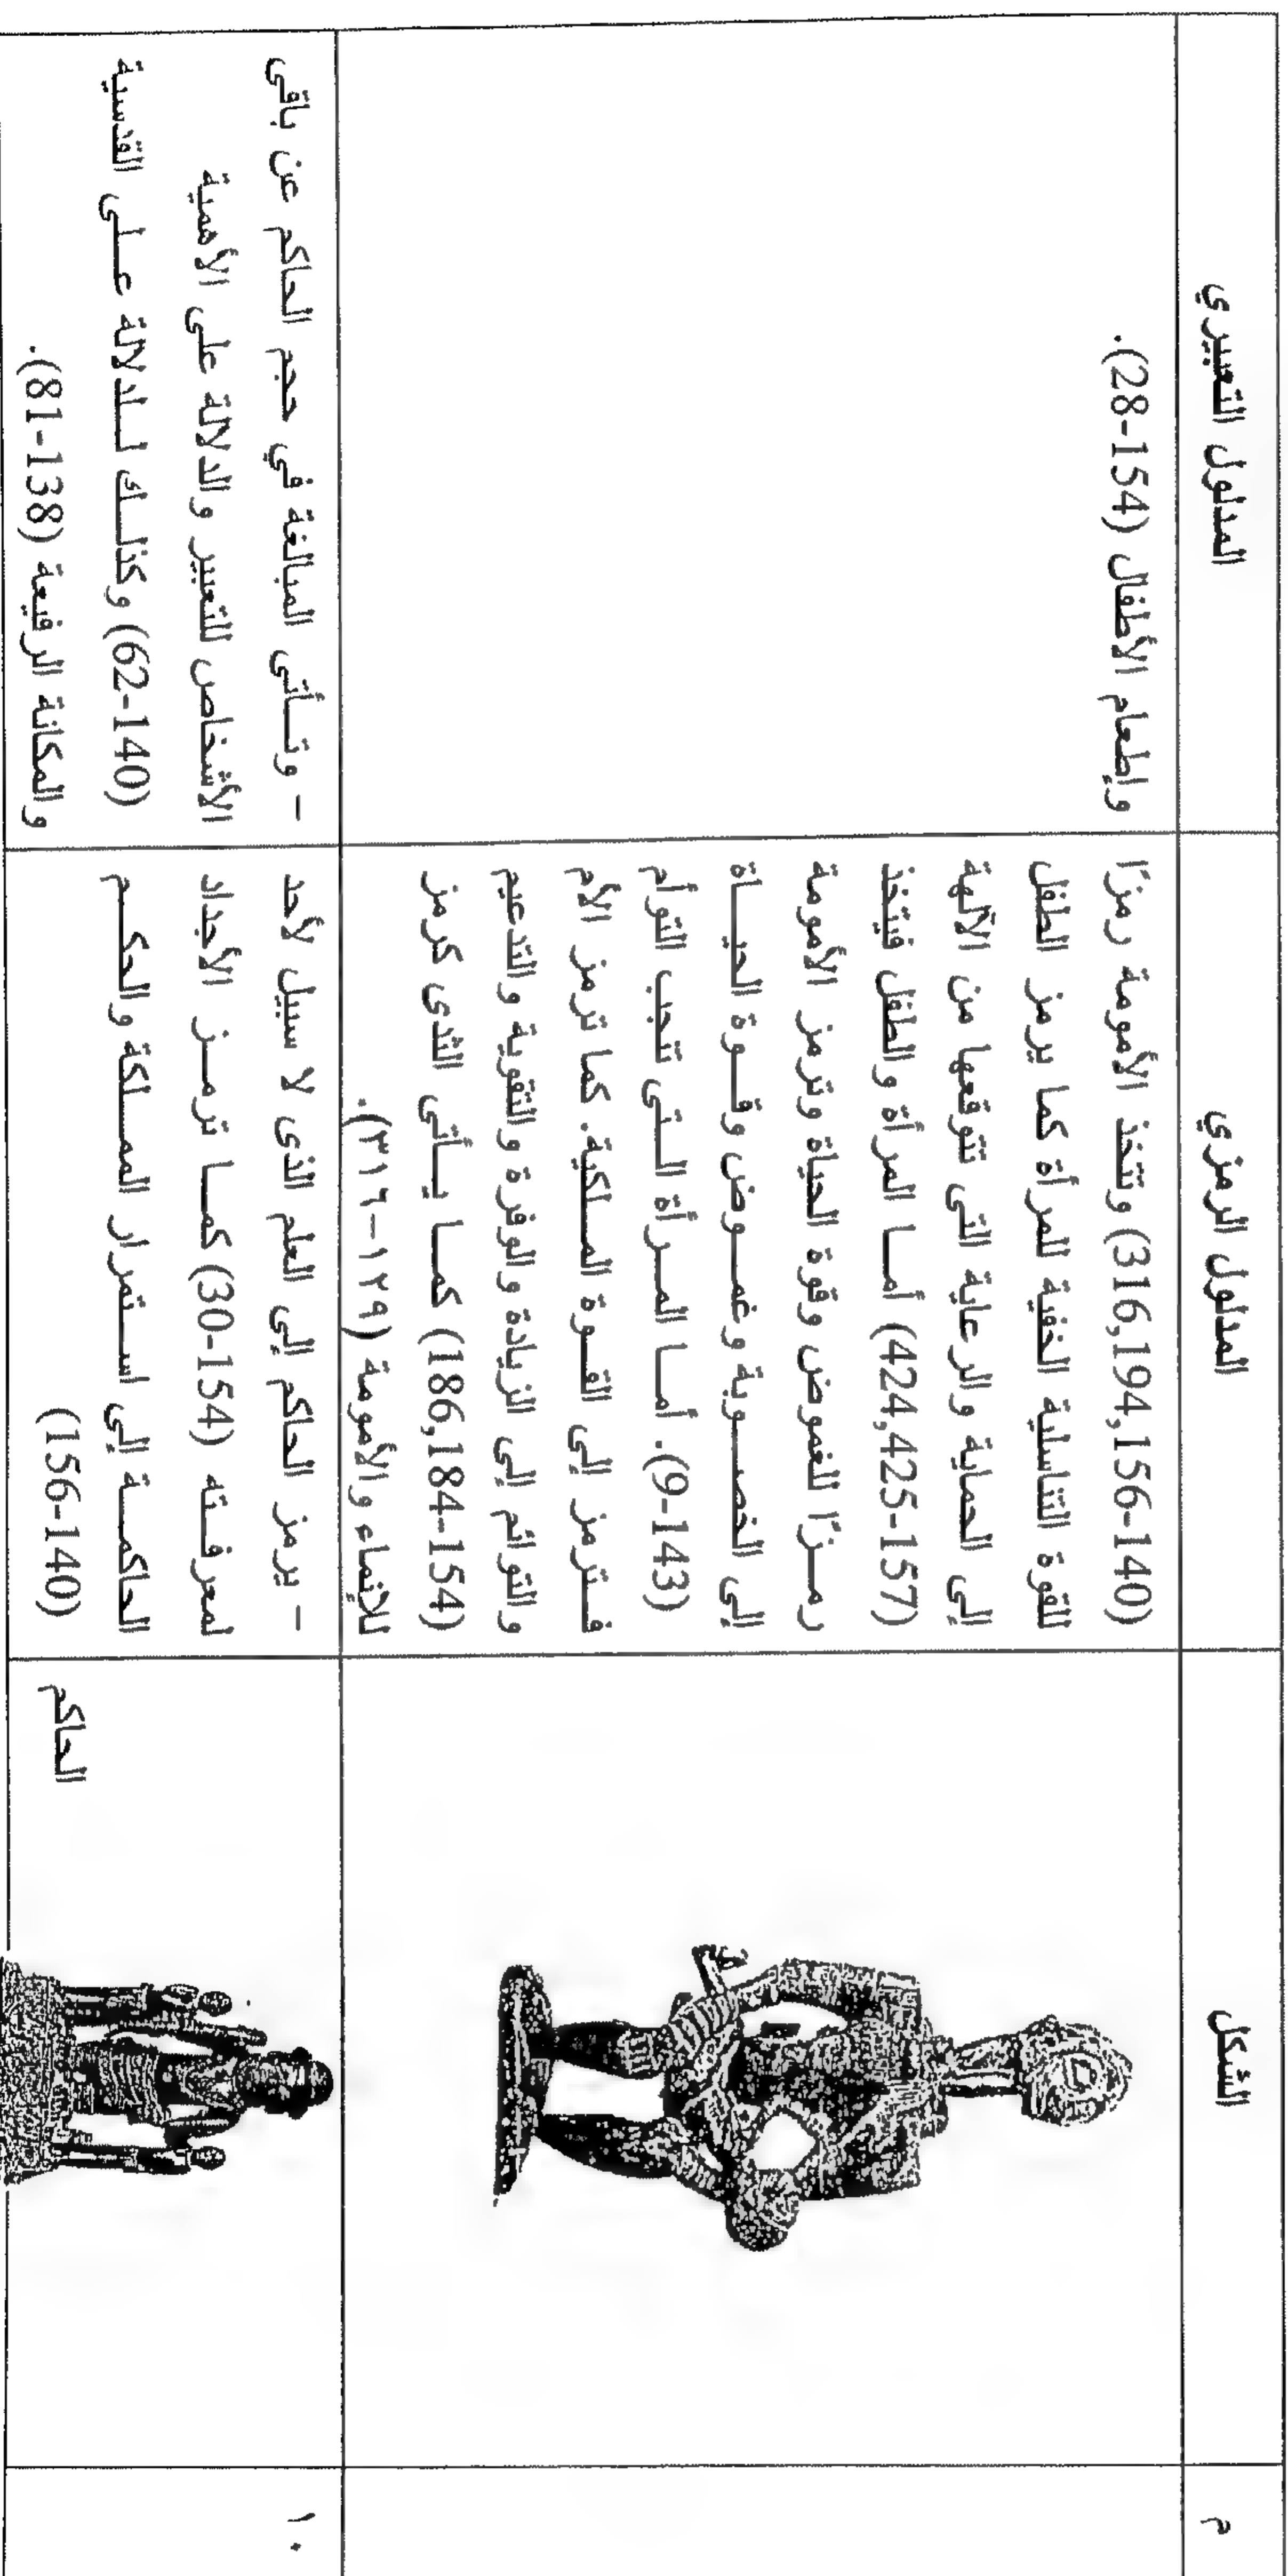 م
الشكل
المدلول الرمزي
المدلول التعبيري
(316,194,156-140) وتتخذ الأمومة رمزًا
للقوة التناسلية الخفية للمرأة كما يرمز الطفل
إلى الحماية والرعاية التى تتوقعها من الآلهة
(424,425-157) أمـا المرأة والطفل فيتخذ
رمـزًا للغموض وقوة الحياة وترمز الأمومة
إلى الخصـوبة وغمـوض وقـوة الحيـاة
(9-143). أمـا المـرأة الـتى تنجب التوأم
فـترمز إلى القـوة المـلكية. كما ترمز الأم
والتوائم إلى الزيادة والوفرة والتقوية والتدعيم
(186,184-154) كمـا يـأتى الثدى كرمز
للإنماء والأمومة (١٢٩-٣١٦).
وإطعام الأطفال (154-28).
١٠
الحاكم
- يرمز الحاكم إلى العلم الذى لا سبيل لأحد
لمعرفـته (154-30) كمـا ترمـز الأجداد
الحاكمـة إلى اسـتمرار الممـلكة والحكـم
(156-140)
- وتـأتى المبالغة في حجم الحاكم عن باقى
الأشخاص للتعبير والدلالة على الأهمية
(62-140) وكذلـك لـلدلالة عـلى القدسية
والمكانة الرفيعة (138-81).